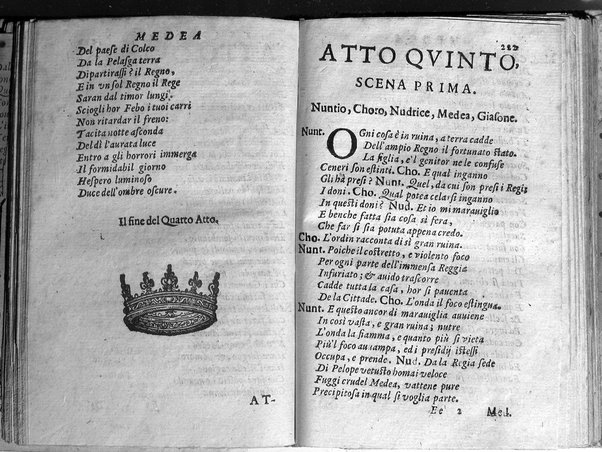 MEDEA
Del paese di Colco
Da la Pelasga terra
Dipartirassi? il Regno,
E in vn sol Regno il Rege
Saran dal timor lungi.
Sciogli hor Febo i tuoi carri
Non ritardar il freno:
Tacita notte asconda
Del dì l'aurata luce
Entro a gli horrori immerga
Il formidabil giorno
Hespero luminoso
Duce dell'ombre oscure.
Il fine del Quarto Atto.
AT-
ATTO QVINTO.
SCENA PRIMA.
Nuntio, Choro, Nudrice, Medea, Giasone.
Nunt. OGni cosa è in ruina, a terra cadde
Dell'ampio Regno il fortunato stato.
La figlia, e'l genitor ne le confuse
Ceneri son estinti. Cho. E qual inganno
Gli hà presi? Nunt. Quel, da cui son presi i Regi;
I doni. Cho. Qual potea celarsi inganno
In questi doni? Nud. Et io mi marauiglio
E benche fatta sia cosa sì fera,
Che far si sia potuta appena credo.
Cho. L'ordin racconta di sì gran ruina.
Nunt. Poiche il costretto, e violento foco
Per ogni parte dell'immensa Reggia
Infuriato; & auido trascorre
Cadde tutta la casa, hor si pauenta
De la Cittade. Cho. L'onda il foco estingua.
Nunt. E questo ancor di marauiglia auuiene
In così vasta, e gran ruina; nutre
L'onda la fiamma, e quanto più si vieta
Più'l foco auuampa, ed i presidij istessi
Occupa, e prende. Nud. Da la Regia sede
Di Pelope vetusto homai veloce
Fuggi crudel Medea, vattene pure
Precipitosa in qual si voglia parte.
Ee 2 Med.